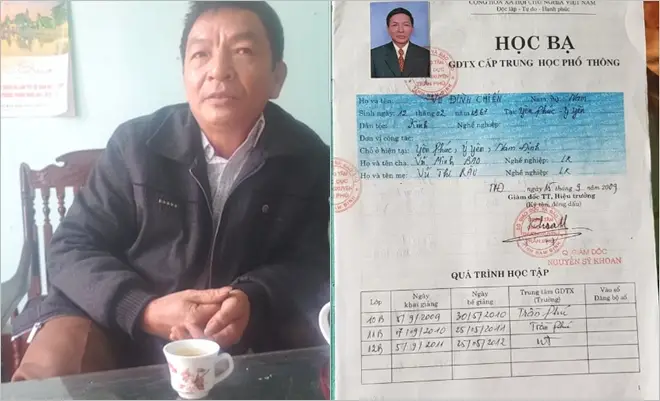 CỘNG HÒA XÃ HỘI CHỦ NGHĨA VIỆT NAM
Độc lập - Tự do - Hạnh phúc
HỌC BẠ
GDTX CẤP TRUNG HỌC PHỔ THÔNG
Họ và tên: VŨ ĐÌNH CHIẾN Nam, Nữ: Nam
Sinh ngày 12 tháng 02 năm Tại: Yên Phúc - Ý Yên
Dân tộc: Kinh Nghề nghiệp:
Đơn vị công tác:
Chỗ ở hiện tại: Yên Phúc, Ý Yên, Nam Định
Họ và tên cha: Vũ Minh BAO Nghề nghiệp: LR
Họ và tên mẹ: Vũ Thị RẬU Nghề nghiệp: LR
ngày 15 tháng 9 năm 2009
Giám đốc TT, Hiệu trưởng
(Ký tên, đóng dấu)
Q. GIÁM ĐỐC
NGUYỄN SỸ KHOAN
QUÁ TRÌNH HỌC TẬP
Lớp Ngày khai giảng Ngày bế giảng Trung tâm GDTX (Trường) Vào sổ Đăng bộ số
10B 5/9/2009 30/5/2010 Trần Phú
11B 17/09/2010 25/05/2011 Trần Phú
12B 5/9/2011 25/05/2012
1